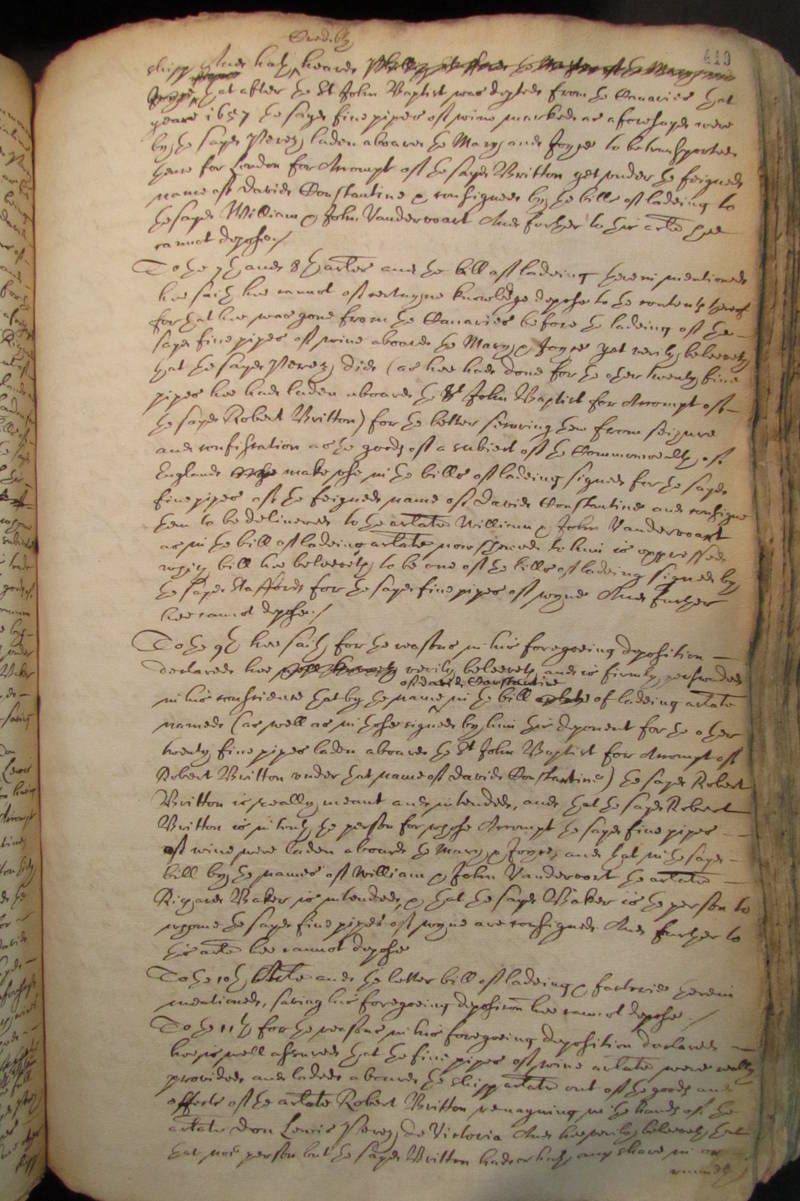 Credibly
449
shipp And hath heard
that after the St John Baptist was depted from the Canaries that
yeare 1657 the sayd five pipes of wine marked as aforesayd were
by the sayd Perez laden aboard the Mary and Joyce to be transported
hence for London for Accompt of the sayd Britton yet under the feigned
name of David Constantine & consigned by the bills of lading to
the sayd William & John Vandervoart And further to this arle hee
cannot depose./
To the 7th and 8th arles and the bill of ladeing therein mentioned
hee saith hee cannot of certayne knowledge depose to the contents thereof
for that hee was gone from the Canaries before the lading of the
sayd five pipes of wine aboard the Mary & Joyce yet verily beleeveth
that the sayd Perez did (as hee had done for the other twenty five
pipes hee had laden aboard the St John Baptist for Accompt of
the sayd Robert Britton) for the better securing them from seizure
and confiscation as the goods of a subiect of the Commonwealth of
England make use in the bills of ladeing signed for the sayd
five pipes of the feigned name of David Constantine and consigne
them to be delivered to the arlate William & John Vandervoart
as in the bill of ladeing arlate now shewed to him is expressed
which bill hee beleeveth to be one of the bills of ladeing signed by
the sayd Stafford for the sayd five pipes of wyne And further
hee cannot depose./
To the 9th hee saith for the reasons in his foregoeing deposition
declared hee verily beleeveth and is firmly perswaded
of David Constantine
in his conscience that by the name in the bill of lading arlate
named (as well as in those signed by him this deponent for the other
twenty five pipes laden aboard the St John Baptist for Accompt of
Robert Britton under that name of David Constantine) the sayd Robert
Britton is really meant and intended, and that the sayd Robert
Britton is in truth the person for whose Accompt the sayd five pipes
of wine were laden aboard the Mary & Joyce, and that in the sayd
bill by the names of William & John Vandervoart the arlate
Richard Baker is intended, & that the sayd Baker is the person to
whome the sayd five pipes of wyne are consigned And further to
this arle hee cannot depose
To the 10th Arle and the letter bill of ladeing & factories therein
mentioned, saving his foregoeing deposicon hee cannot depose./
To the 11th for the reasons in his foregoeing deposition declared
hee is well assured that the five pipes of wine arlate were really
provided and laded aboard the shipp arlate out of the goods and
effects of the arlate Robert Britton remayning in the hands of the
arlate Don Lewis Perez de Victoria And hee verily beleeveth that
that noe person but the sayd Britton had or hath any share in or